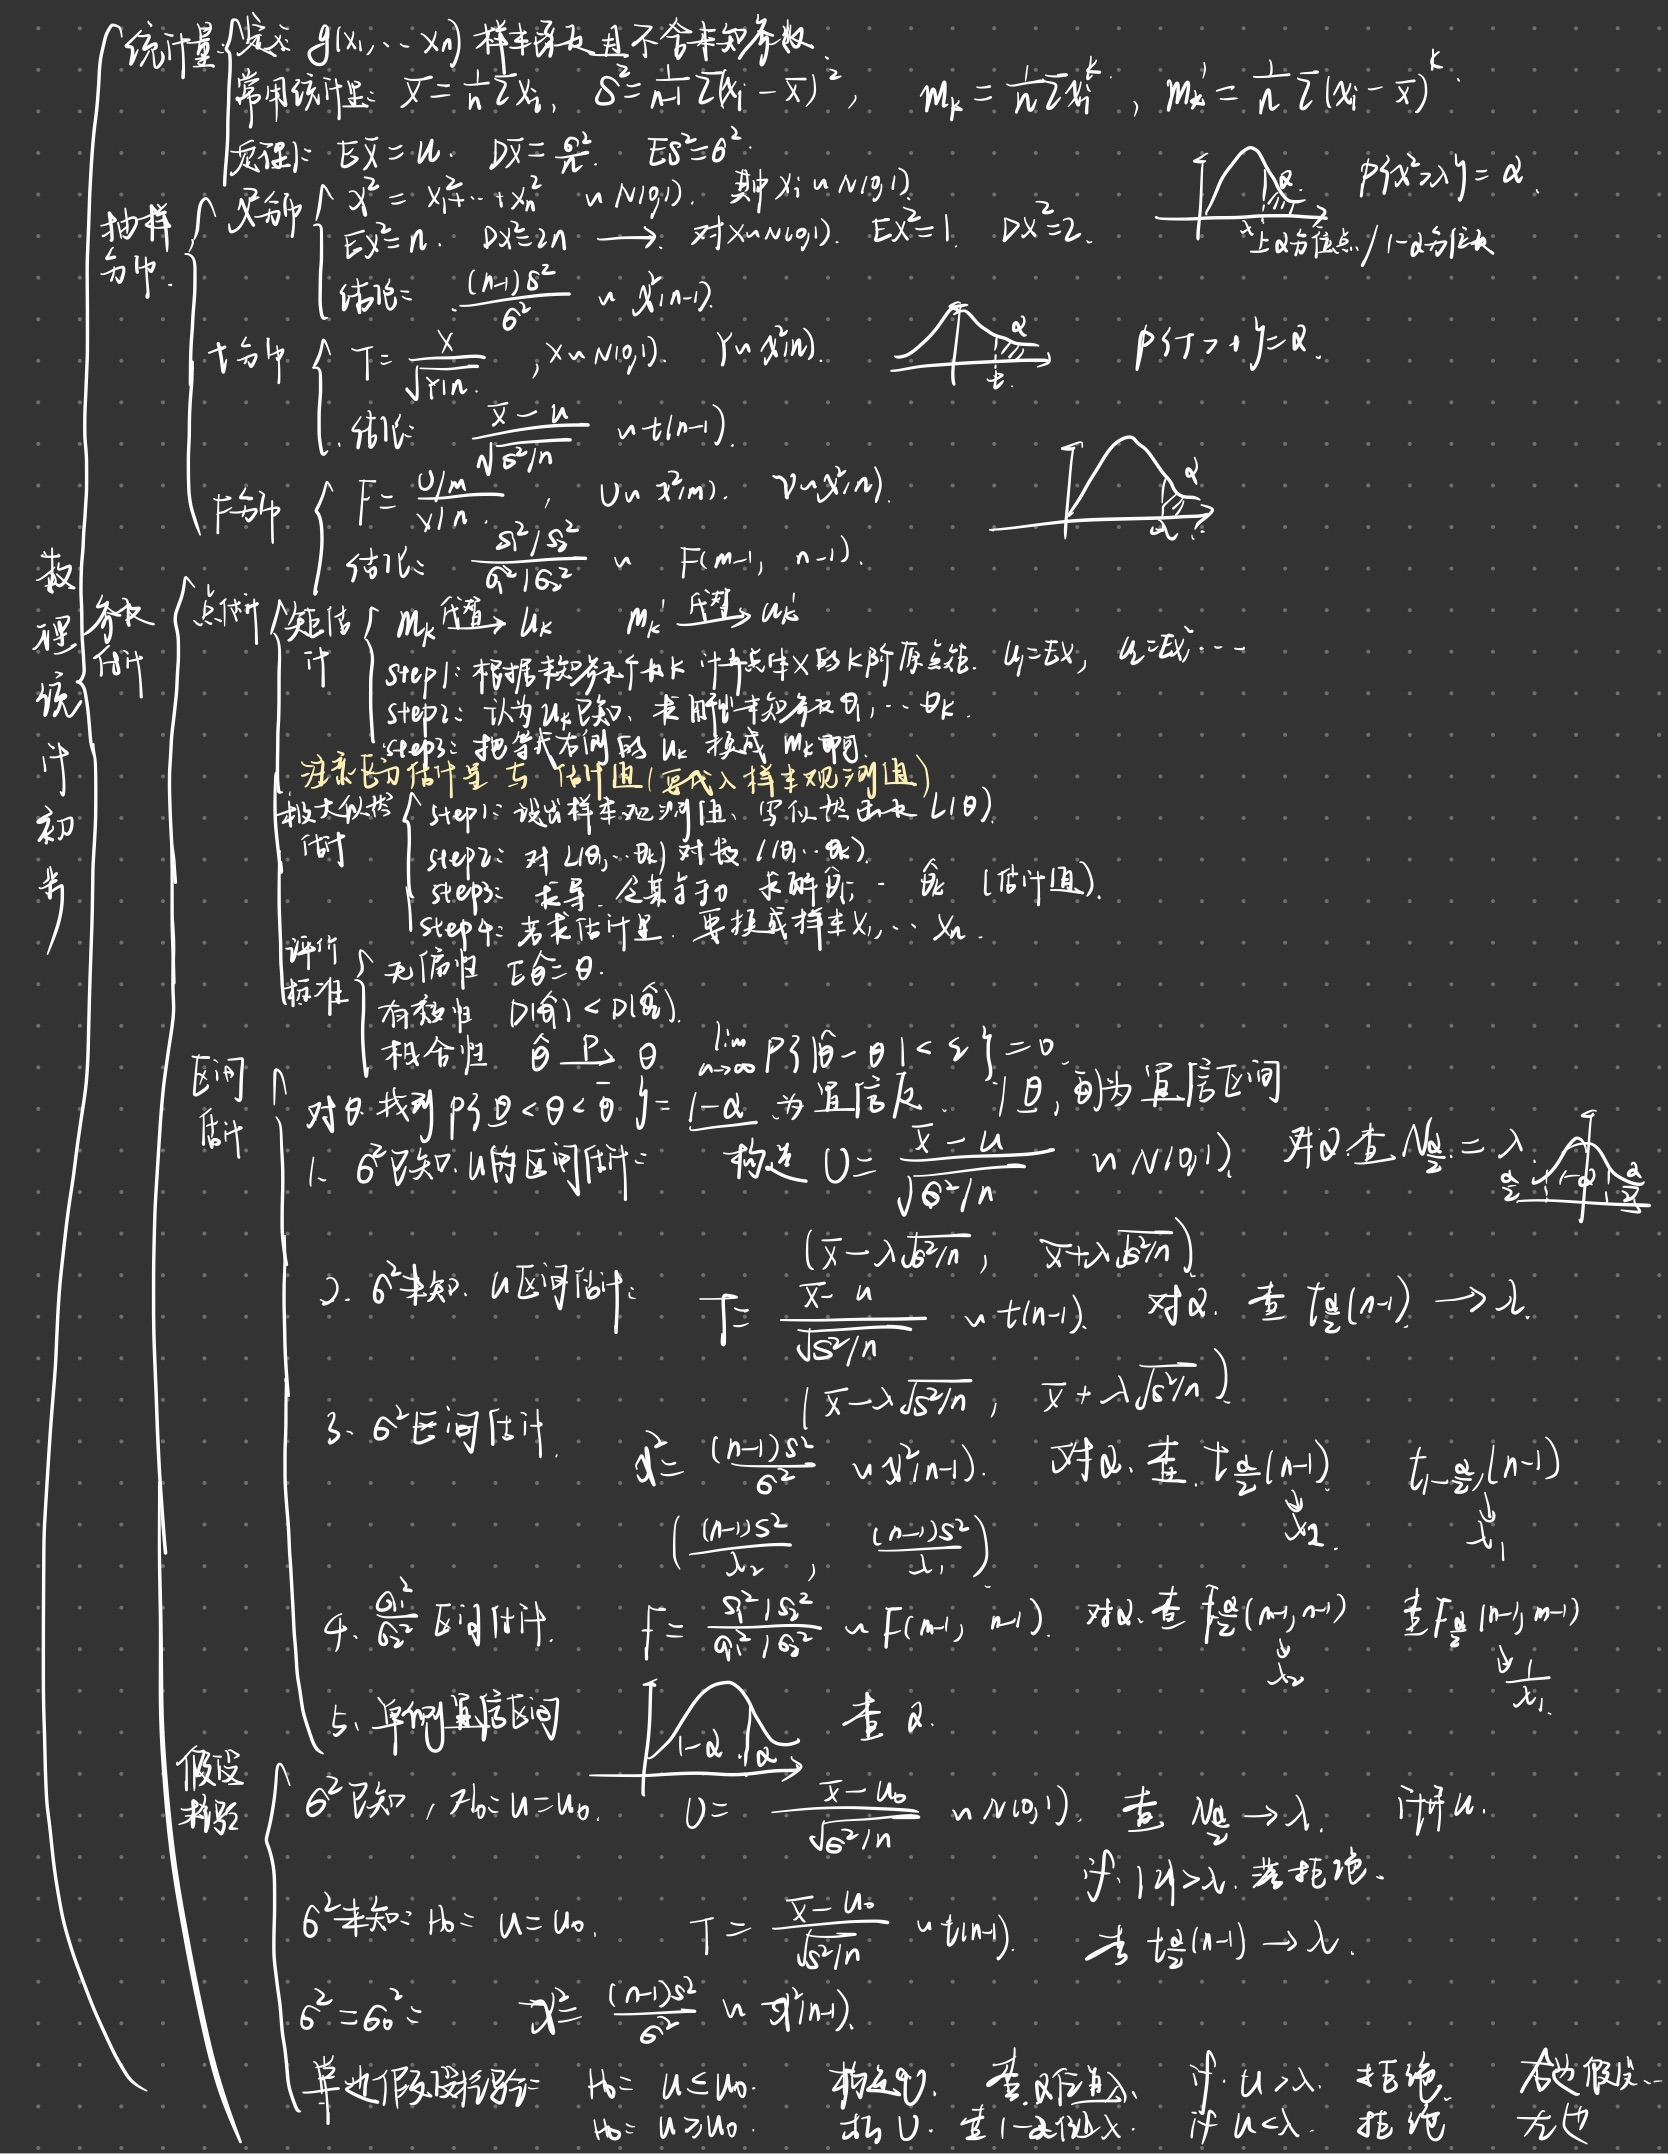 数理统计初步
统计量: 定义: g(x₁, ... xₙ) 样本函数且不含未知参数.
常用统计量: x̄ = 1/n Σxᵢ, S² = 1/(n-1) Σ(xᵢ - x̄)², mₖ = 1/n Σxᵢᵏ, mₖ' = 1/n Σ(xᵢ - x̄)ᵏ.
定理: Ex̄ = u. Dx̄ = σ²/n. ES² = σ².
抽样分布.
χ²分布 χ² = x₁² + ... + xₙ² ~ N(0,1). 其中 xᵢ ~ N(0,1). P{χ²>λ} = α.
Eχ² = n. Dχ² = 2n → 对X~N(0,1). EX² = 1. DX² = 2. 上α分位点 / 1-α分位数
结论: (n-1)S²/σ² ~ χ²(n-1).
t分布 T = X/√(Y/n), X~N(0,1). Y~χ²(n). α t. P{T>t} = α.
结论: (x̄ - u)/√(S²/n) ~ t(n-1).
F分布 F = (U/m)/(V/n), U~χ²(m). V~χ²(n). α
结论: (S₁²/S₂²)/(σ₁²/σ₂²) ~ F(m-1, n-1).
参数估计
点估计 矩估计 mₖ 代替→ uₖ mₖ' 代替→ uₖ'
step1: 根据未知参数个数k 计算总体X的k阶原点矩. u₁=EX, u₂=EX², ...
step2: 认为uₖ已知, 求解出未知参数θ₁, ... θₖ.
step3: 把等式右侧的 uₖ 换成 mₖ即可.
注意区分估计量与估计值(要代入样本观测值)
极大似然估计 step1: 设出样本观测值, 写似然函数 L(θ).
step2: 对 L(θ₁...θₖ) 对数 l(θ₁...θₖ).
step3: 求导. 令其等于0 求解θ̂₁, ... θ̂ₖ (估计值).
step4: 若求估计量. 要换成样本X₁, ... Xₙ.
评价标准 无偏性 Eθ̂ = θ.
有效性 D(θ̂₁) < D(θ̂₂).
相合性 θ̂ P→ θ lim n→∞ P{|θ̂ - θ| < ε} = 0
区间估计
对θ. 找到 P{θ̲ < θ < θ̄} = 1-α 为置信度. (θ̲, θ̄)为置信区间
1. σ²已知. u的区间估计: 构造 U = (x̄ - u)/√(σ²/n) ~ N(0,1). 对α. 查 N α/2 = λ α/2 1-α α/2
(x̄ - λ√(σ²/n), x̄ + λ√(σ²/n))
2. σ²未知. u区间估计: T = (x̄ - u)/√(S²/n) ~ t(n-1). 对α. 查 t α/2 (n-1) → λ.
(x̄ - λ√(S²/n), x̄ + λ√(S²/n))
3. σ²区间估计. χ² = (n-1)S²/σ² ~ χ²(n-1). 对α. 查 t α/2 (n-1) ↓ λ₂. t 1-α/2 (n-1) ↓ λ₁
((n-1)S²/λ₂, (n-1)S²/λ₁)
4. σ₁²/σ₂² 区间估计. F = (S₁²/S₂²)/(σ₁²/σ₂²) ~ F(m-1, n-1). 对α. 查 F α/2 (m-1, n-1) ↓ λ₂ 查 F α/2 (n-1, m-1) ↓ 1/λ₁.
5. 单侧置信区间 1-α α 查 α.
假设检验
σ²已知, H₀: u = u₀. U = (x̄ - u₀)/√(σ²/n) ~ N(0,1). 查 N α/2 → λ. 计算u.
if |u| > λ. 拒绝.
σ²未知: H₀: u = u₀. T = (x̄ - u₀)/√(S²/n) ~ t(n-1). 查 t α/2 (n-1) → λ.
σ² = σ₀²: χ² = (n-1)S²/σ² ~ χ²(n-1).
单边假设检验: H₀: u ≤ u₀. 构造U. 查α位点λ. if u > λ. 拒绝. 右边假设...
H₀: u ≥ u₀. 构U. 查1-α位λ. if u < λ. 拒绝 左边